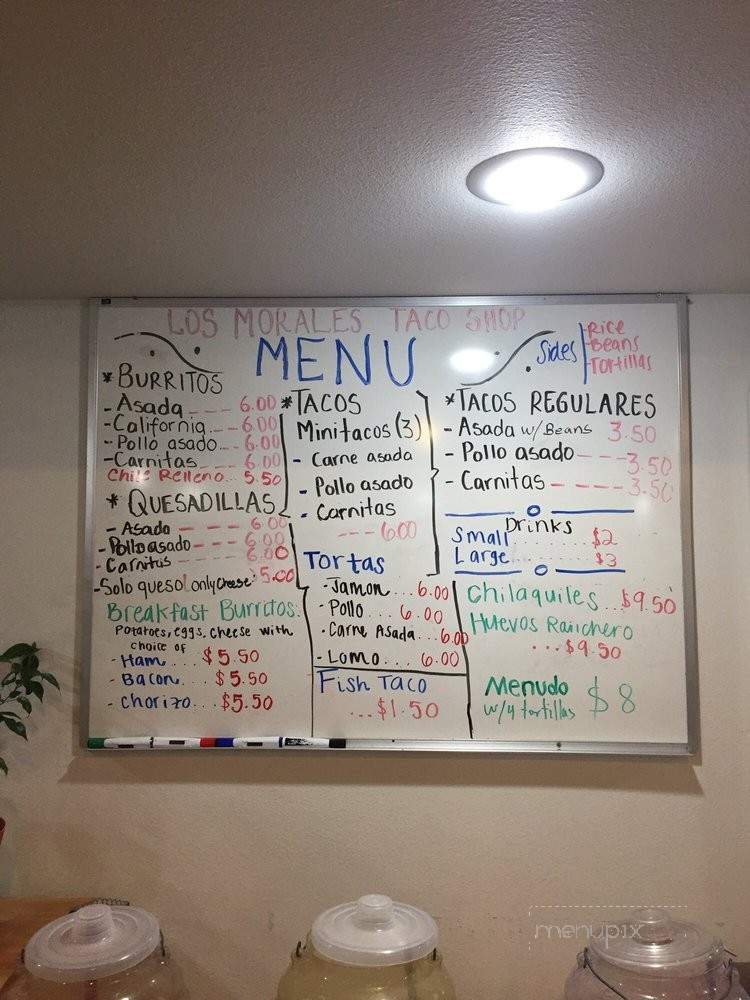 LOS MORALES TACO SHOP
MENU
Sides
Rice
Beans
Tortillas
*BURRITOS
-Asada --- 6.00
-California --- 6.00
-Pollo asado... 6.00
-Carnitas... 6.00
Chile Relleno... 5.50
*QUESADILLAS
-Asada --- 6.00
-Pollo asado --- 6.00
-Carnitas --- 6.00
-Solo queso! only cheese! 5.00
Breakfast Burritos:
Potatoes, eggs, cheese with
choice of
-Ham... $5.50
-Bacon... $5.50
-Chorizo... $5.50
*TACOS
Minitacos (3)
- Carne asada
- Pollo asado
- Carnitas
--- 6.00
Tortas
-Jamon... 6.00
-Pollo... 6.00
-Carne Asada... 6.00
-Lomo... 6.00
Fish Taco
...$1.50
*TACOS REGULARES
-Asada w/Beans 3.50
-Pollo asado --- 3.50
-Carnitas --- 3.50
Drinks
Small ........ $2
Large ........ $3
Chilaquiles... $9.50
Huevos Ranchero
...$9.50
Menudo $8
w/4 tortillas
menupix